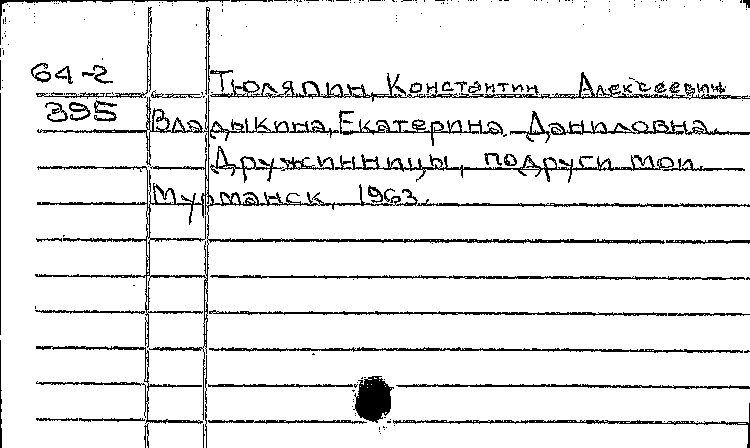 64-2 Тюляпин, Константин Алексеевич
395 Владыкина, Екатерина Даниловна.
Дружинницы, подруги мои.
Мурманск, 1963.